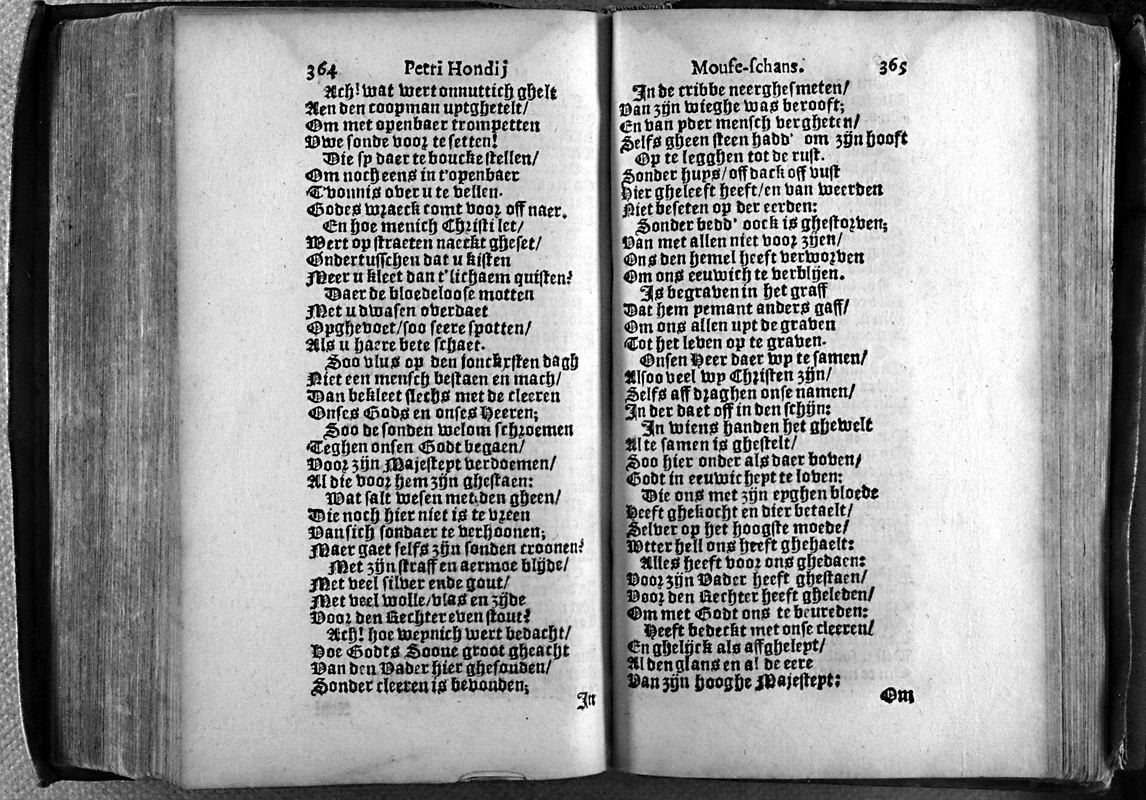 364 Petri Hondij
Ach! wat wert onnuttich ghelt
Aen den coopman uytghetelt/
Om met openbaer trompetten
Uwe sonde voor te setten!
Die sy daer te boucke stellen/
Om noch eens in t'openbaer
Tvonnis over u te vellen.
Godes wraeck comt voor off naer.
En hoe menich Christi let/
Wert op straeten naeckt gheset/
Ondertusschen dat u kisten
Meer u kleet dan t'lichaem quisten?
Daer de bloedeloose motten
Met u dwasen overdaet
Opghevoet/soo seere spotten/
Als u haere bete schaet.
Soo vlus op den jonckxsten dagh
Niet een mensch bestaen en mach/
Dan bekleet slechs met de cleeren
Onses Gods en onses Heeren;
Soo de sonden welom schroemen
Teghen onsen Godt begaen/
Voor zijn Majesteyt verdoemen/
Al die voor hem zijn ghestaen:
Wat salt wesen met den gheen/
Die noch hier niet is te vreen
Van sich sondaer te verhoonen;
Maer gaet selfs zijn sonden croonen?
Met zijn straff en aermoe blijde/
Met veel silver ende gout/
Met veel wolle/vlas en zijde
Voor den Rechter even stout?
Ach! hoe weynich wert bedacht/
Hoe Godts Soone groot gheacht
Van den Vader hier ghesonden/
Sonder cleeren is bevonden;
In
Mouse-schans. 365
In de cribbe neerghesmeten/
Van zijn wieghe was berooft;
En van yder mensch vergheten/
Selfs gheen steen hadd' om zijn hooft
Op te legghen tot de rust.
Sonder huys/off dack off vust
Hier gheleeft heeft/en van weerden
Niet beseten op der eerden:
Sonder bedd' oock is ghestorven;
Van met allen niet voor zijen/
Ons den hemel heeft verworven
Om ons eeuwich te verblijen.
Is begraven in het graff
Dat hem yemant anders gaff/
Om ons allen uyt de graven
Tot het leven op te graven.
Onsen Heer daer wy te samen/
Alsoo veel wy Christen zijn/
Selfs aff draghen onse namen/
In der daet off in den schijn:
In wiens handen het ghewelt
Al te samen is ghestelt/
Soo hier onder als daer boven/
Godt in eeuwicheyt te loven:
Die ons met zijn eyghen bloede
Heeft ghekocht en dier betaelt/
Selver op het hoogste moede/
Wtter hell ons heeft ghehaelt:
Alles heeft voor ons ghedaen:
Voor zijn Vader heeft ghestaen/
Voor den Rechter heeft gheleden/
Om met Godt ons te beureden:
Heeft bedeckt met onse cleeren/
En ghelijck als affgheleyt/
Al den glans en al de eere
Van zijn hooghe Majesteyt:
Om